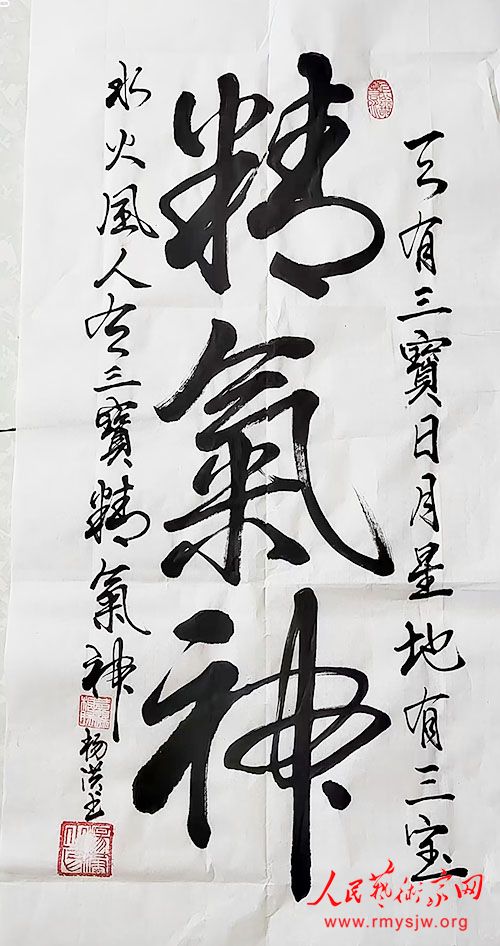 天有三寳日月星地有三宝
精氣神
水火風人有三寳精氣神
杨洪玉
人民藝術家网
www.rmysjw.org